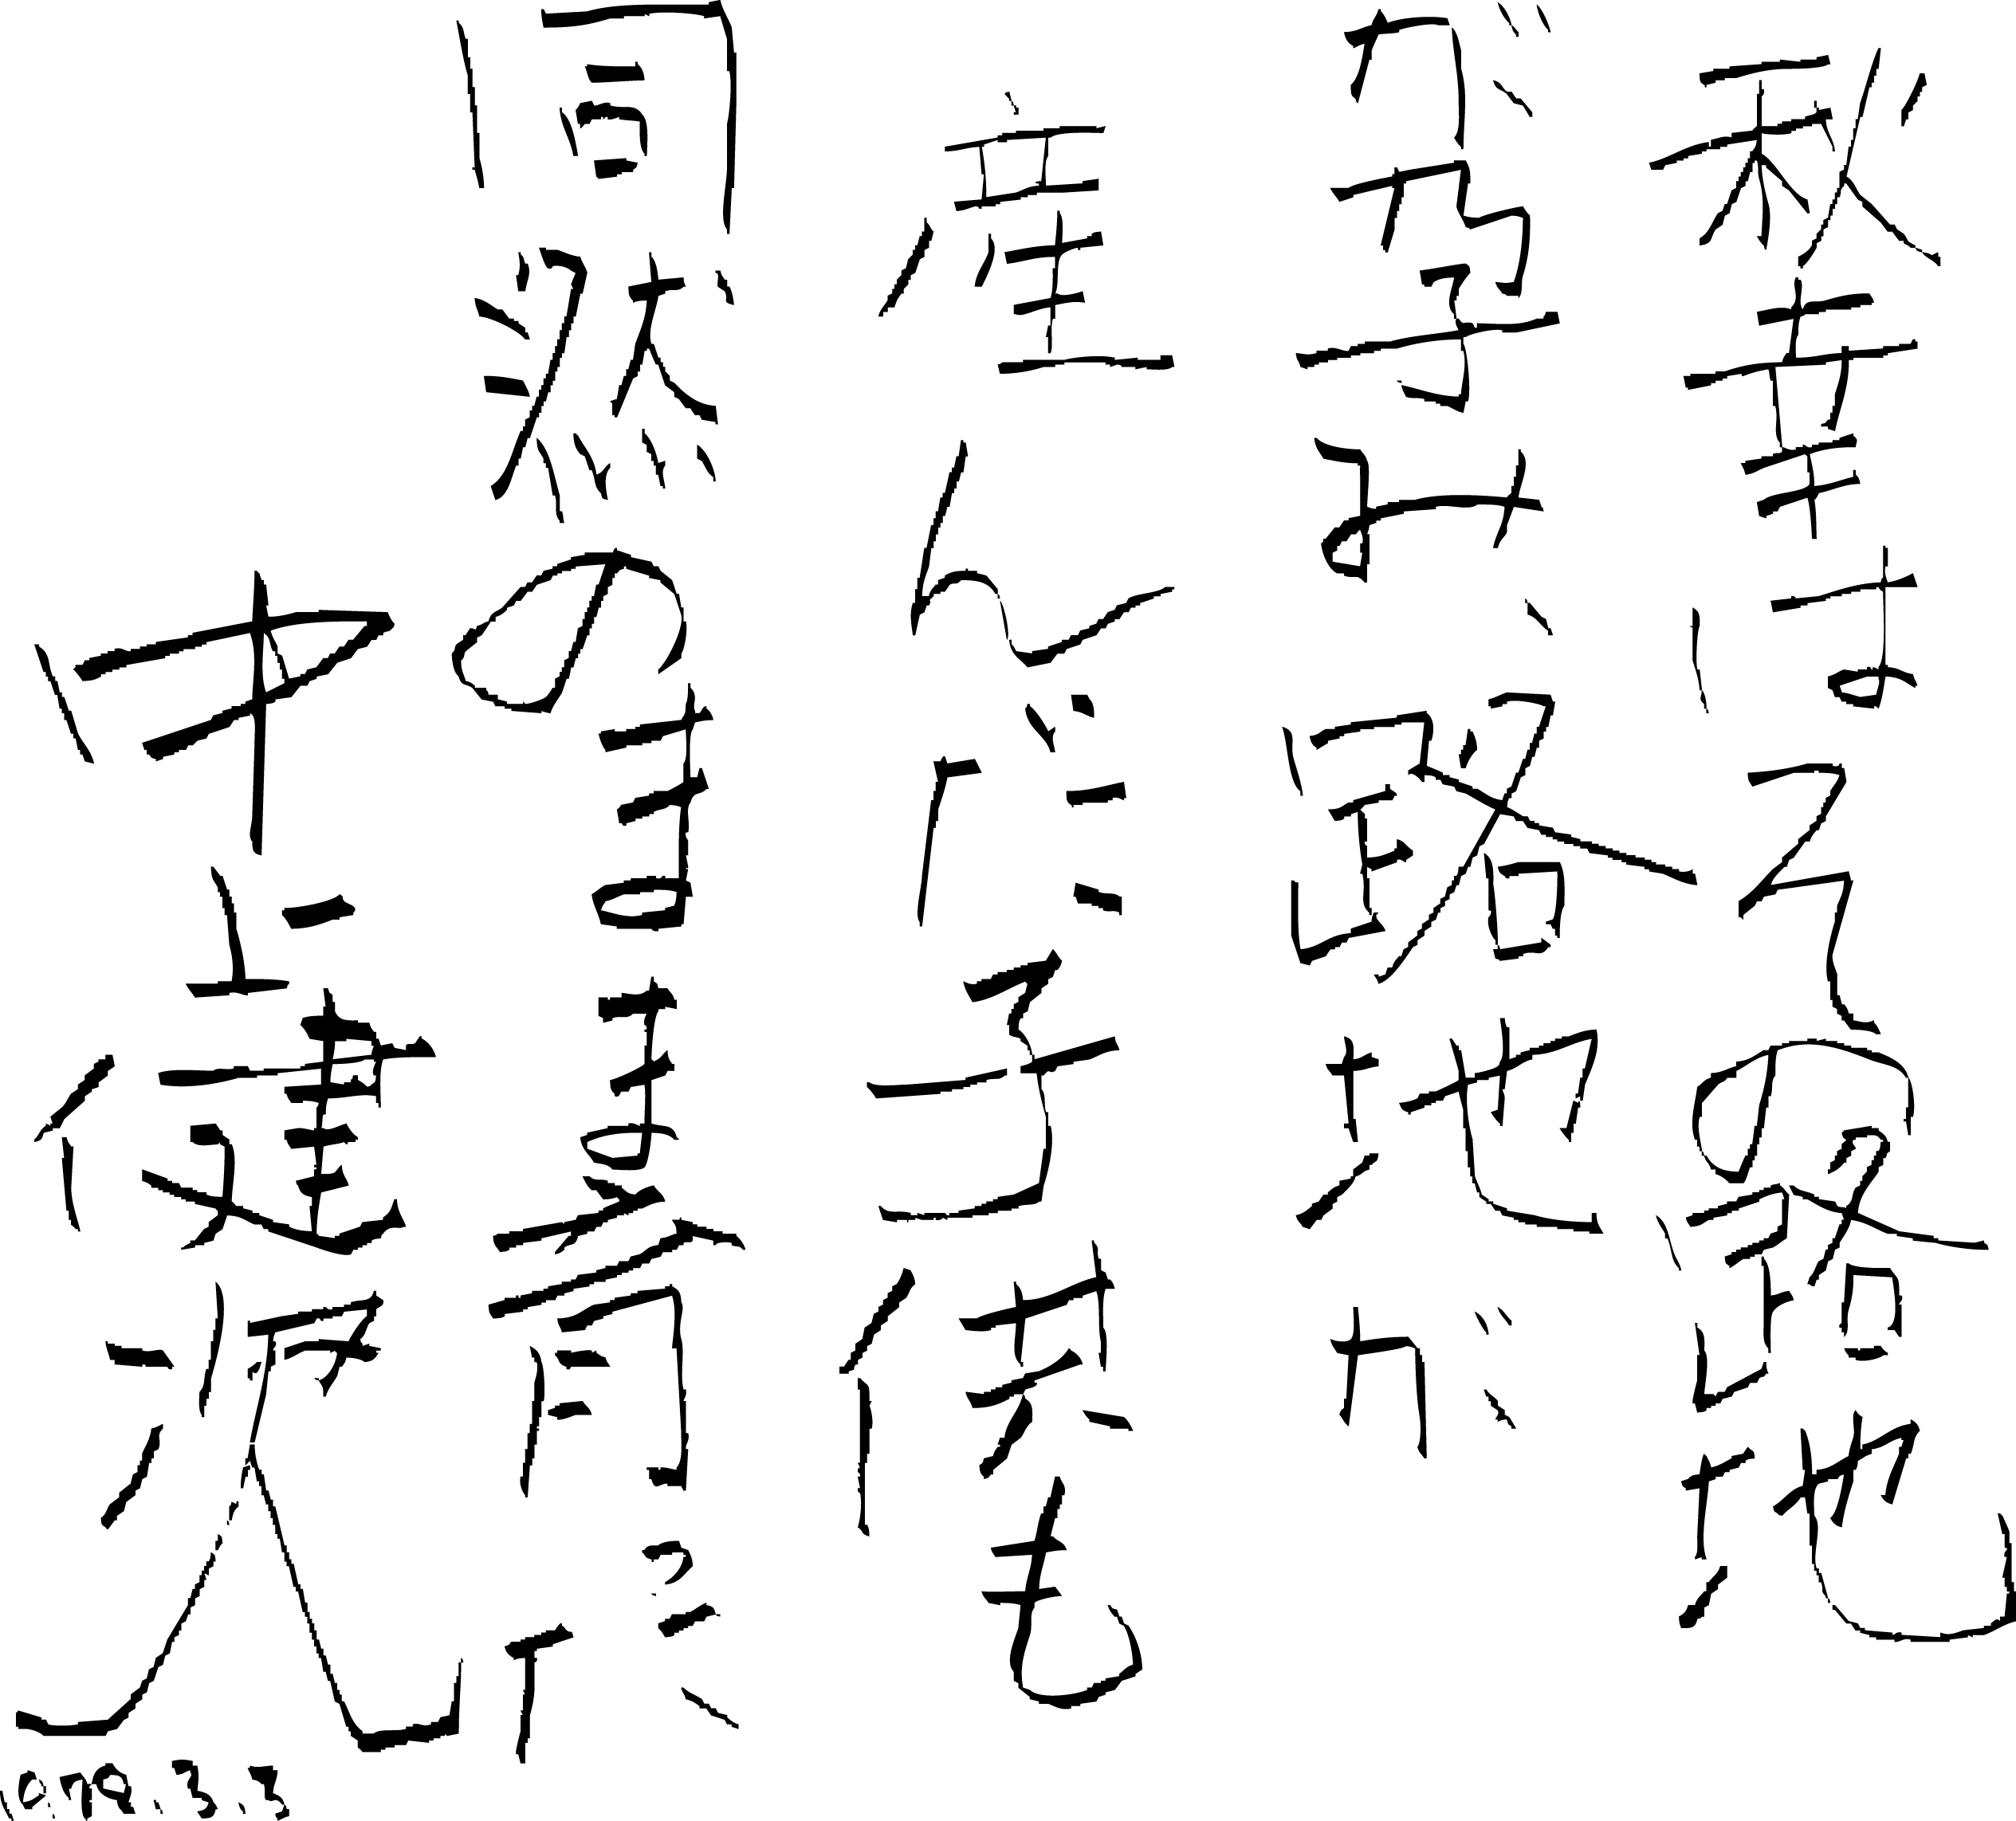 秋幸はその路地
が孕み、路地が
産んだ子供も
同然のまま育った
中上健次
1978.3.3